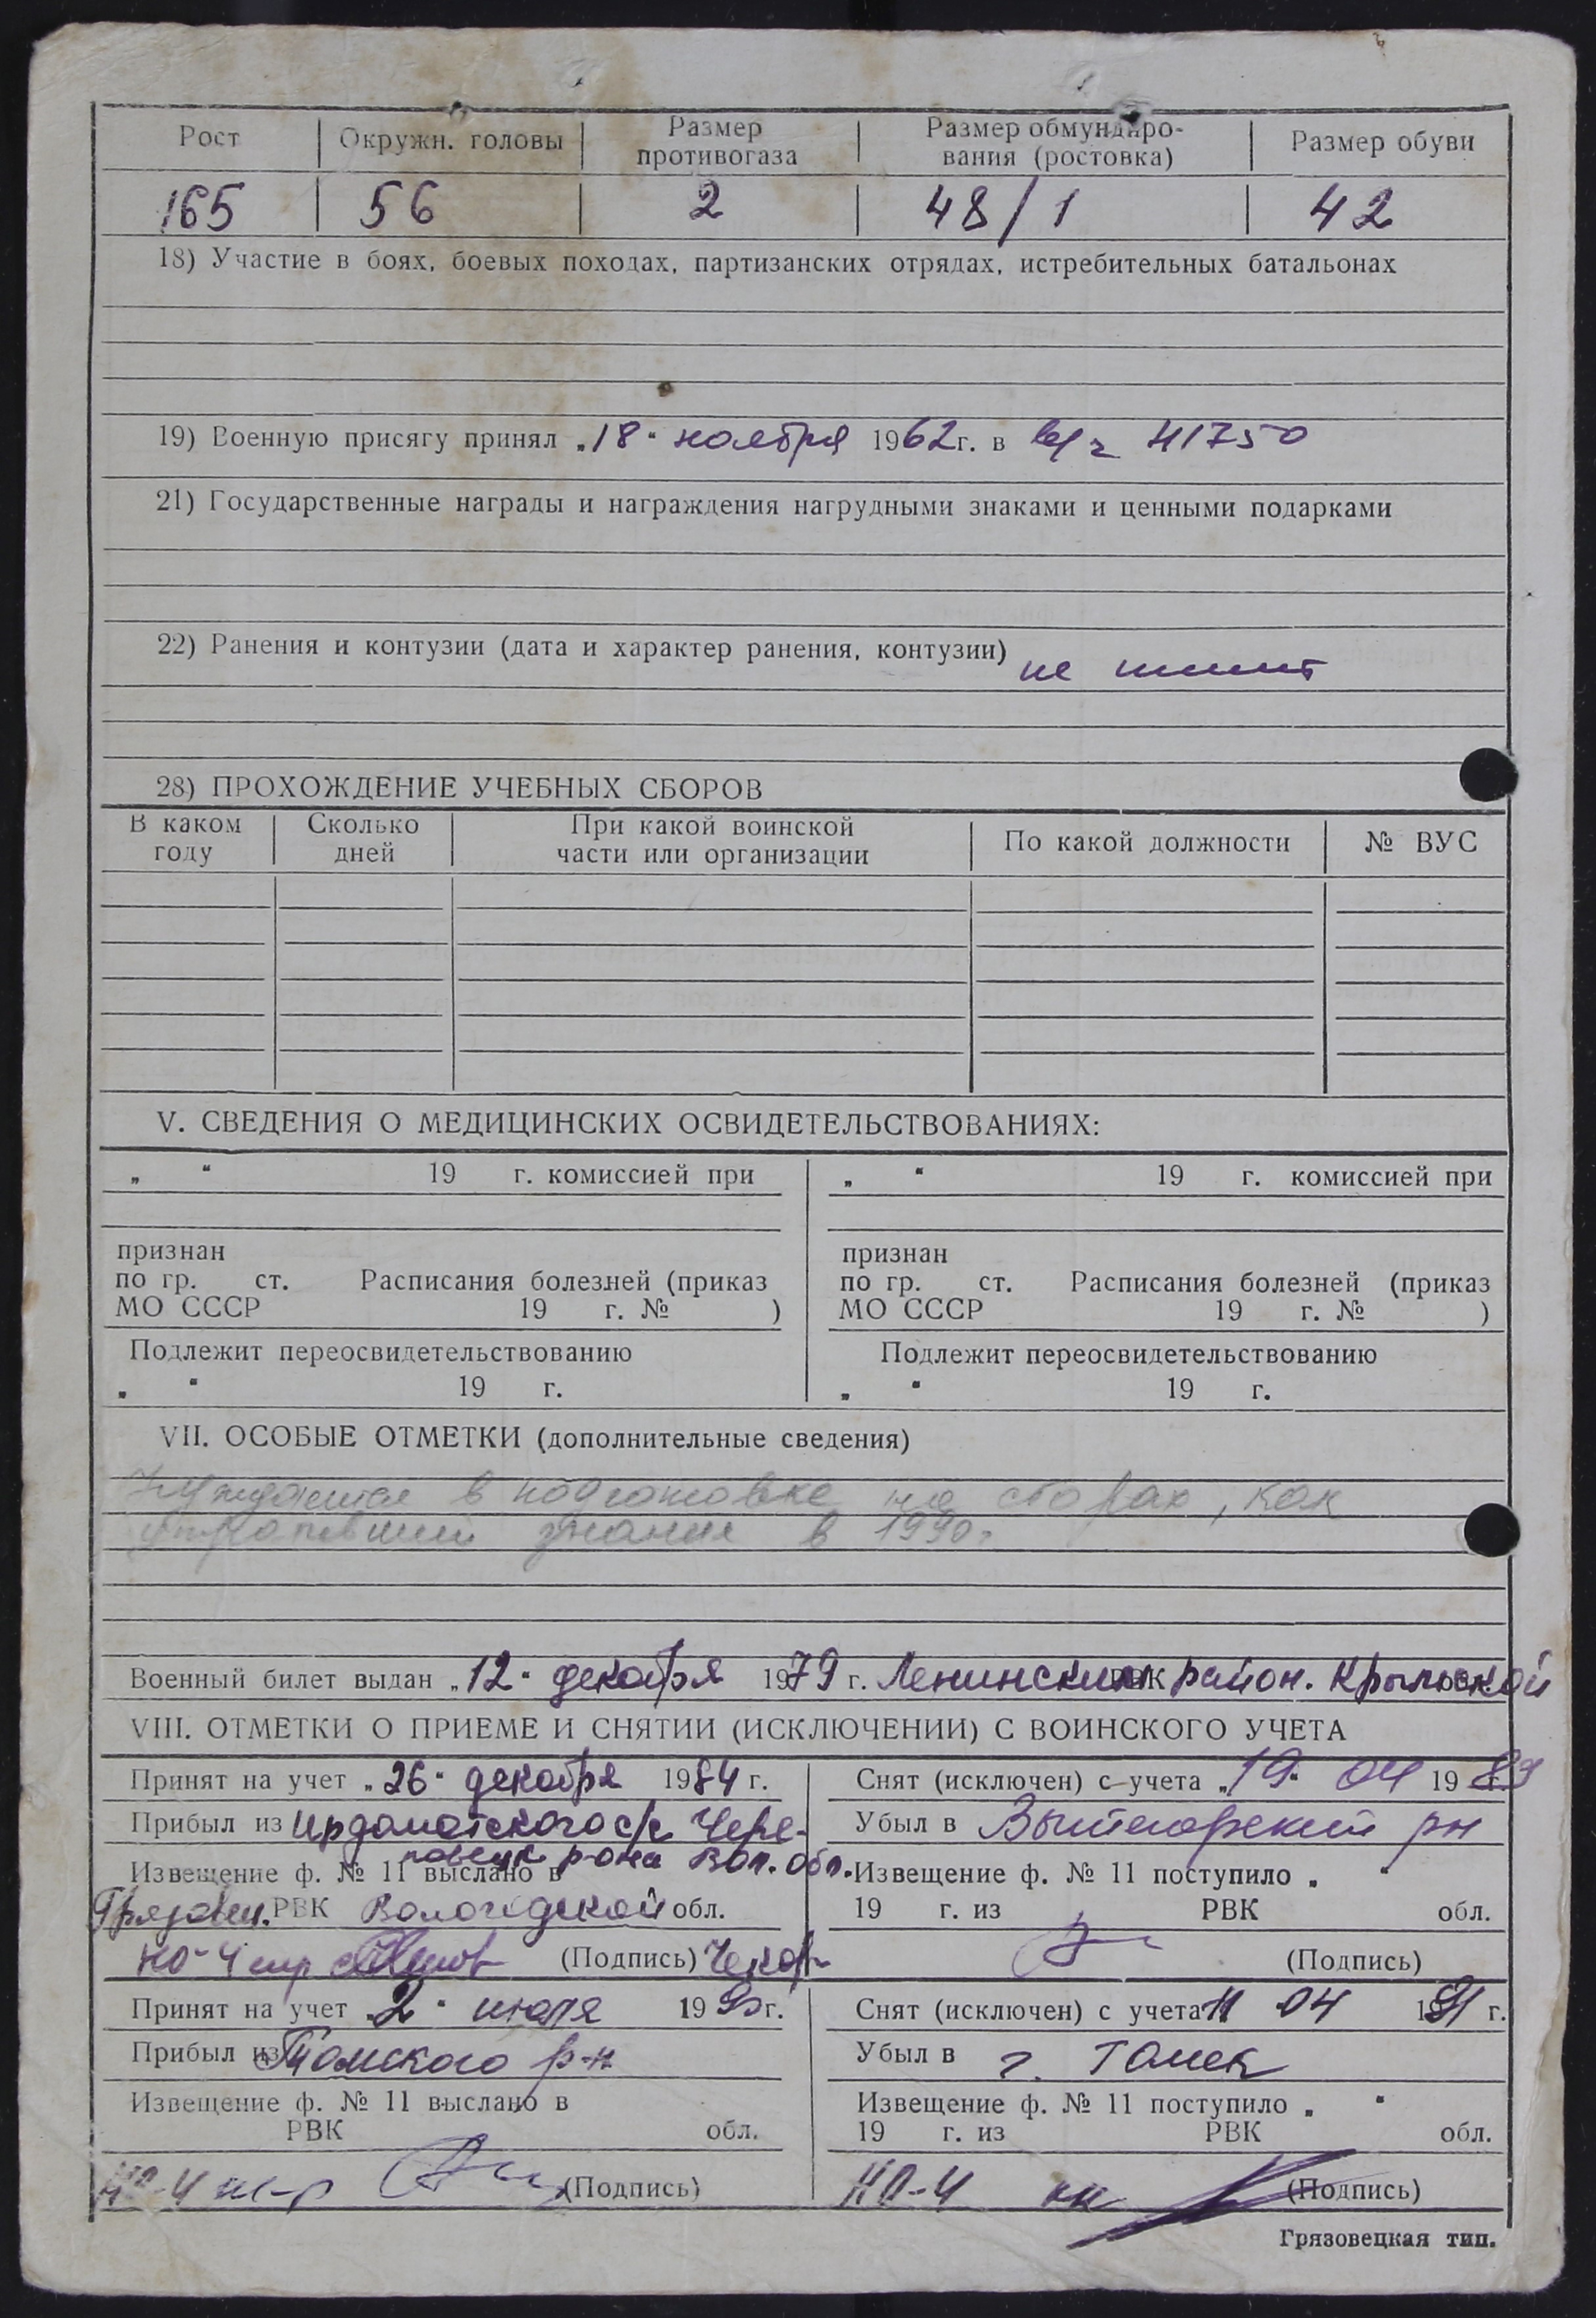 Рост Окружн. головы Размер противогаза Размер обмундиро- вания (ростовка) Размер обуви
165 56 2 48/1 42
18) Участие в боях, боевых походах, партизанских отрядах, истребительных батальонах
19) Военную присягу принял „18“ ноября 1962г. в в/ч 41750
21) Государственные награды и награждения нагрудными знаками и ценными подарками
22) Ранения и контузии (дата и характер ранения, контузии) не имеет
28) ПРОХОЖДЕНИЕ УЧЕБНЫХ СБОРОВ
В каком году Сколько дней При какой воинской части или организации По какой должности № ВУС
V. СВЕДЕНИЯ О МЕДИЦИНСКИХ ОСВИДЕТЕЛЬСТВОВАНИЯХ:
„ “ 19 г. комиссией при
признан
по гр. ст. Расписания болезней (приказ
МО СССР 19 г. № )
Подлежит переосвидетельствованию
„ “ 19 г.
„ “ 19 г. комиссией при
признан
по гр. ст. Расписания болезней (приказ
МО СССР 19 г. № )
Подлежит переосвидетельствованию
„ “ 19 г.
VII. ОСОБЫЕ ОТМЕТКИ (дополнительные сведения)
Нуждается в подготовке на сборах, как
утративший знания в 1990г.
Военный билет выдан „12“ декабря 1979 г. Ленинским РВК район. Крымской
VIII. ОТМЕТКИ О ПРИЕМЕ И СНЯТИИ (ИСКЛЮЧЕНИИ) С ВОИНСКОГО УЧЕТА
Принят на учет „26“ декабря 1984 г.
Прибыл из Ирдоматского с/с Чере-
повецк р-она Вол. обл.
Извещение ф. № 11 выслано в
Грязовец. РВК Вологодской обл.
НО-4 (Подпись)
Снят (исключен) с учета „19“ 04 1989 г.
Убыл в Вытегорский рн
Извещение ф. № 11 поступило „ “
19 г. из РВК обл.
(Подпись)
Принят на учет 2“ июля 1990г.
Прибыл из Томского р-н
Извещение ф. № 11 выслано в
РВК обл.
НО-4 (Подпись)
Снят (исключен) с учета 11 04 1991 г.
Убыл в г. Томск
Извещение ф. № 11 поступило „ “
19 г. из РВК обл.
НО-4 (Подпись)
Грязовецкая тип.